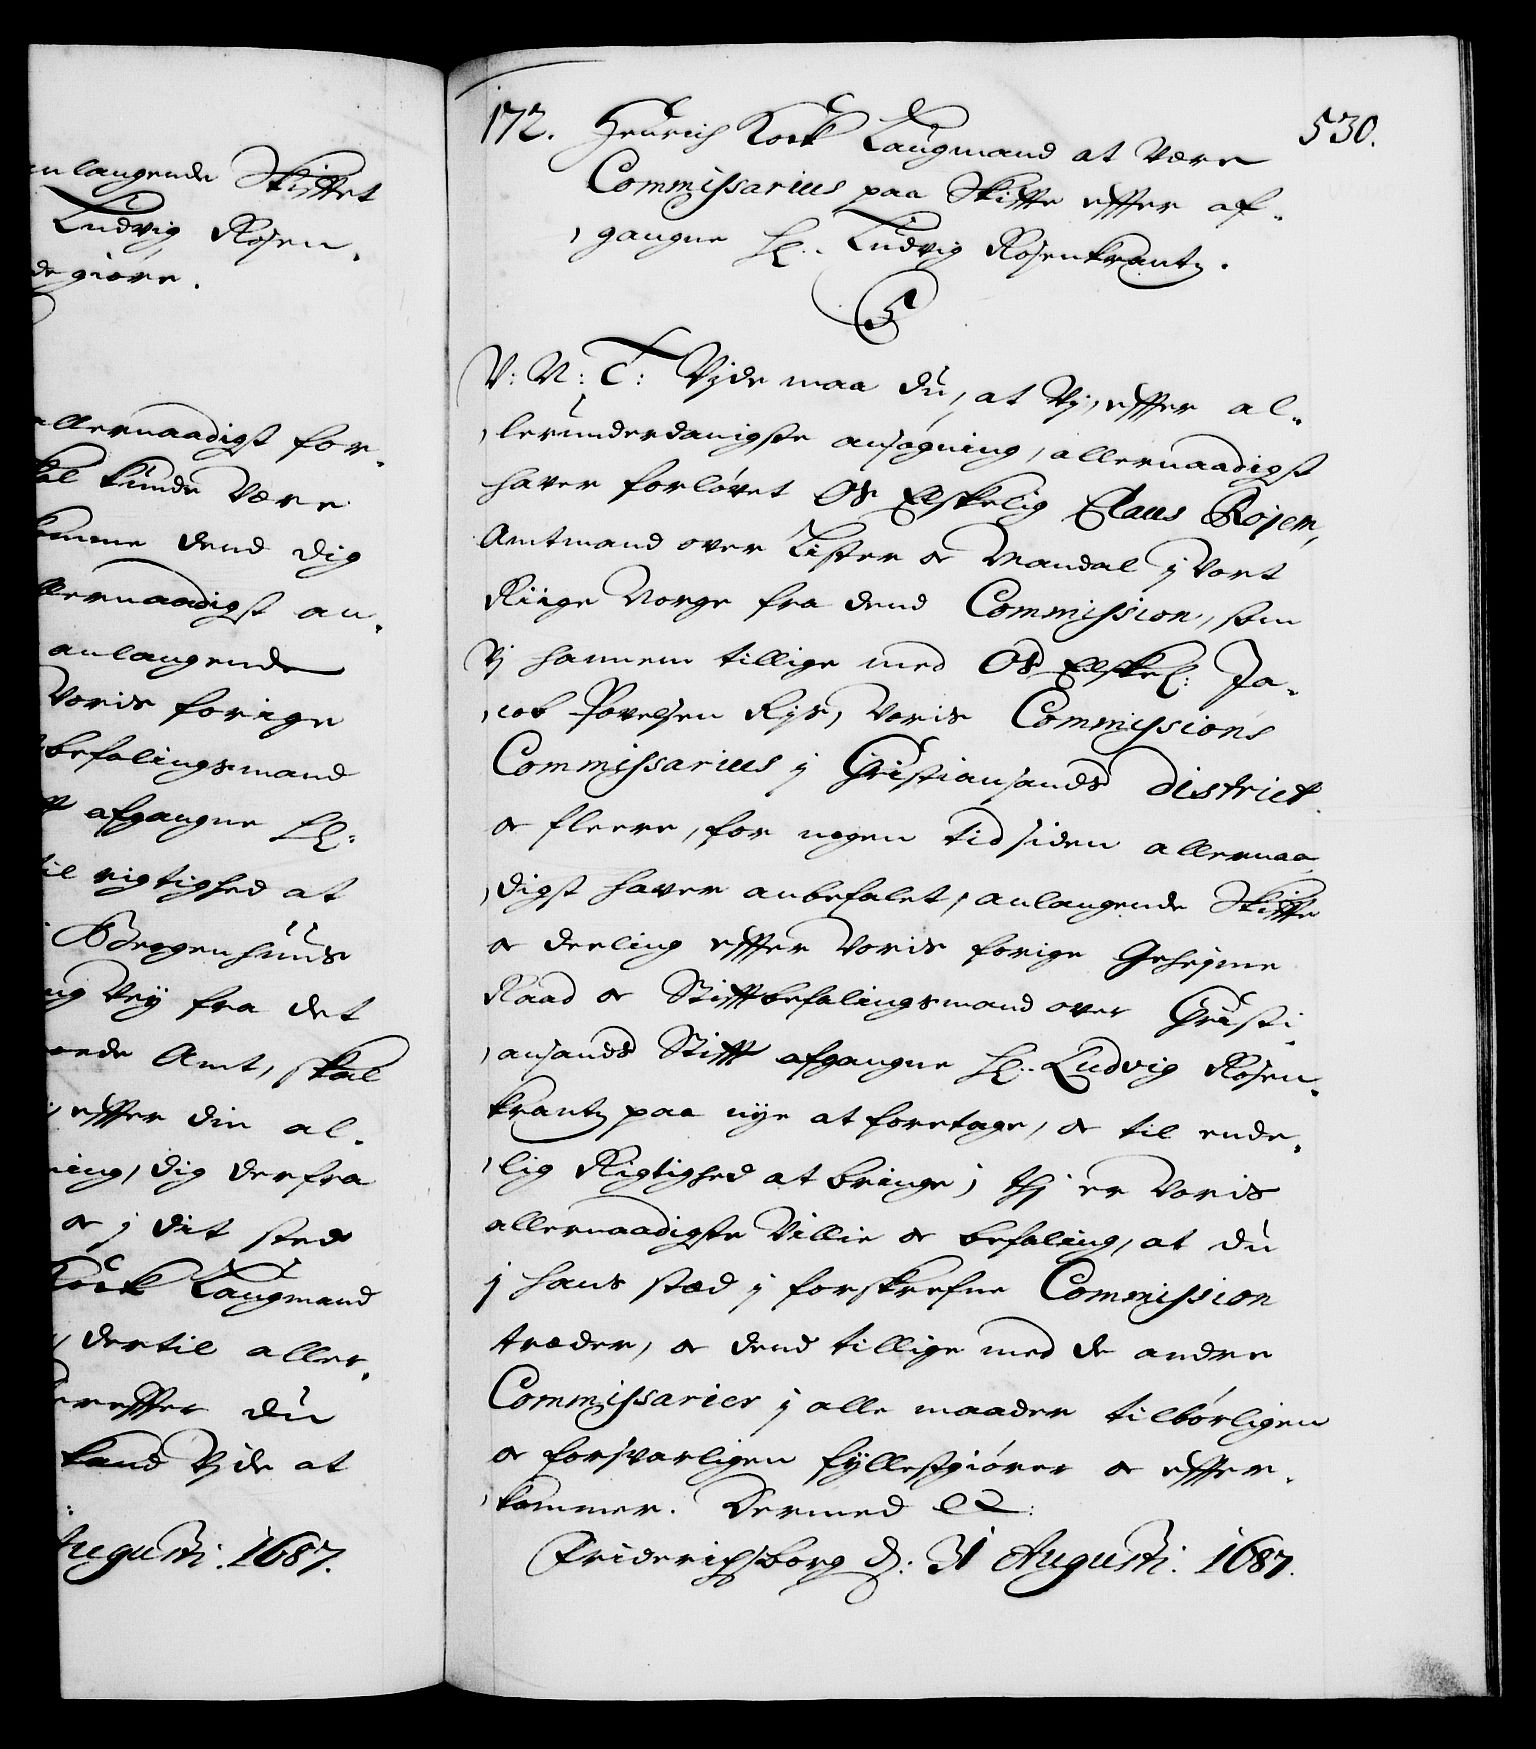 nlangende Skiftet
Ludvig Rosen-
de giøre.
allernaadigst for-
kal kunde Være
komme dend dig
llernaadigst an-
anlangende
Voris forige
befalingsmand
afgangne Hl:
til rigtighed at
Bergenhuus
ng Vey fra det
Amt, skal
effter din al-
ning, dig derfra
oc j dit sted
Kock Laugmand
dertil aller-
ereffter du
kand Vide at
Augusti. 1687.
172. Henrich Kock Laugmand at Være 530.
Commissarius paa Skiffte effter af-
gangne Hl. Ludvig Rosenkrantz.
C5
V: N: T: Vide maa du, at Vj, effter al-
lerunderdanigste ansøgning, allernaadigst
haver forløvet Os Elskelig Claus Røyem,
Amtmand over Lister oc Mandal j Vort
Riige Norge fra dend Commission, som
Vj hannem tillige med Os Elskel: Ja-
cob Povelsen Rys, Voris Commissions
Commissarius j Christiansands District
oc fleere, for nogen tid siden allernaa-
digst haver anbefalet, anlangende Skiffte
oc deeling effter Voris forige Geheyme
Raad oc Stifftbefalingsmand over Christi-
ansands Stifft afgangne Hl. Ludvig Rosen-
krantz paa nye at foretage, oc til ende-
lig Rigtighed at bringe; thj er Voris
allernaadigste Villie oc befaling, at du
j hans sted j forskrefne Commission
træder, oc dend tillige med de andre
Commissarier j alle maader tilbørligen
oc forsvarligen fyllestgiører oc effter-
kommer. Dermed etc:
Friderichsborg d: 31 Augusti. 1687.